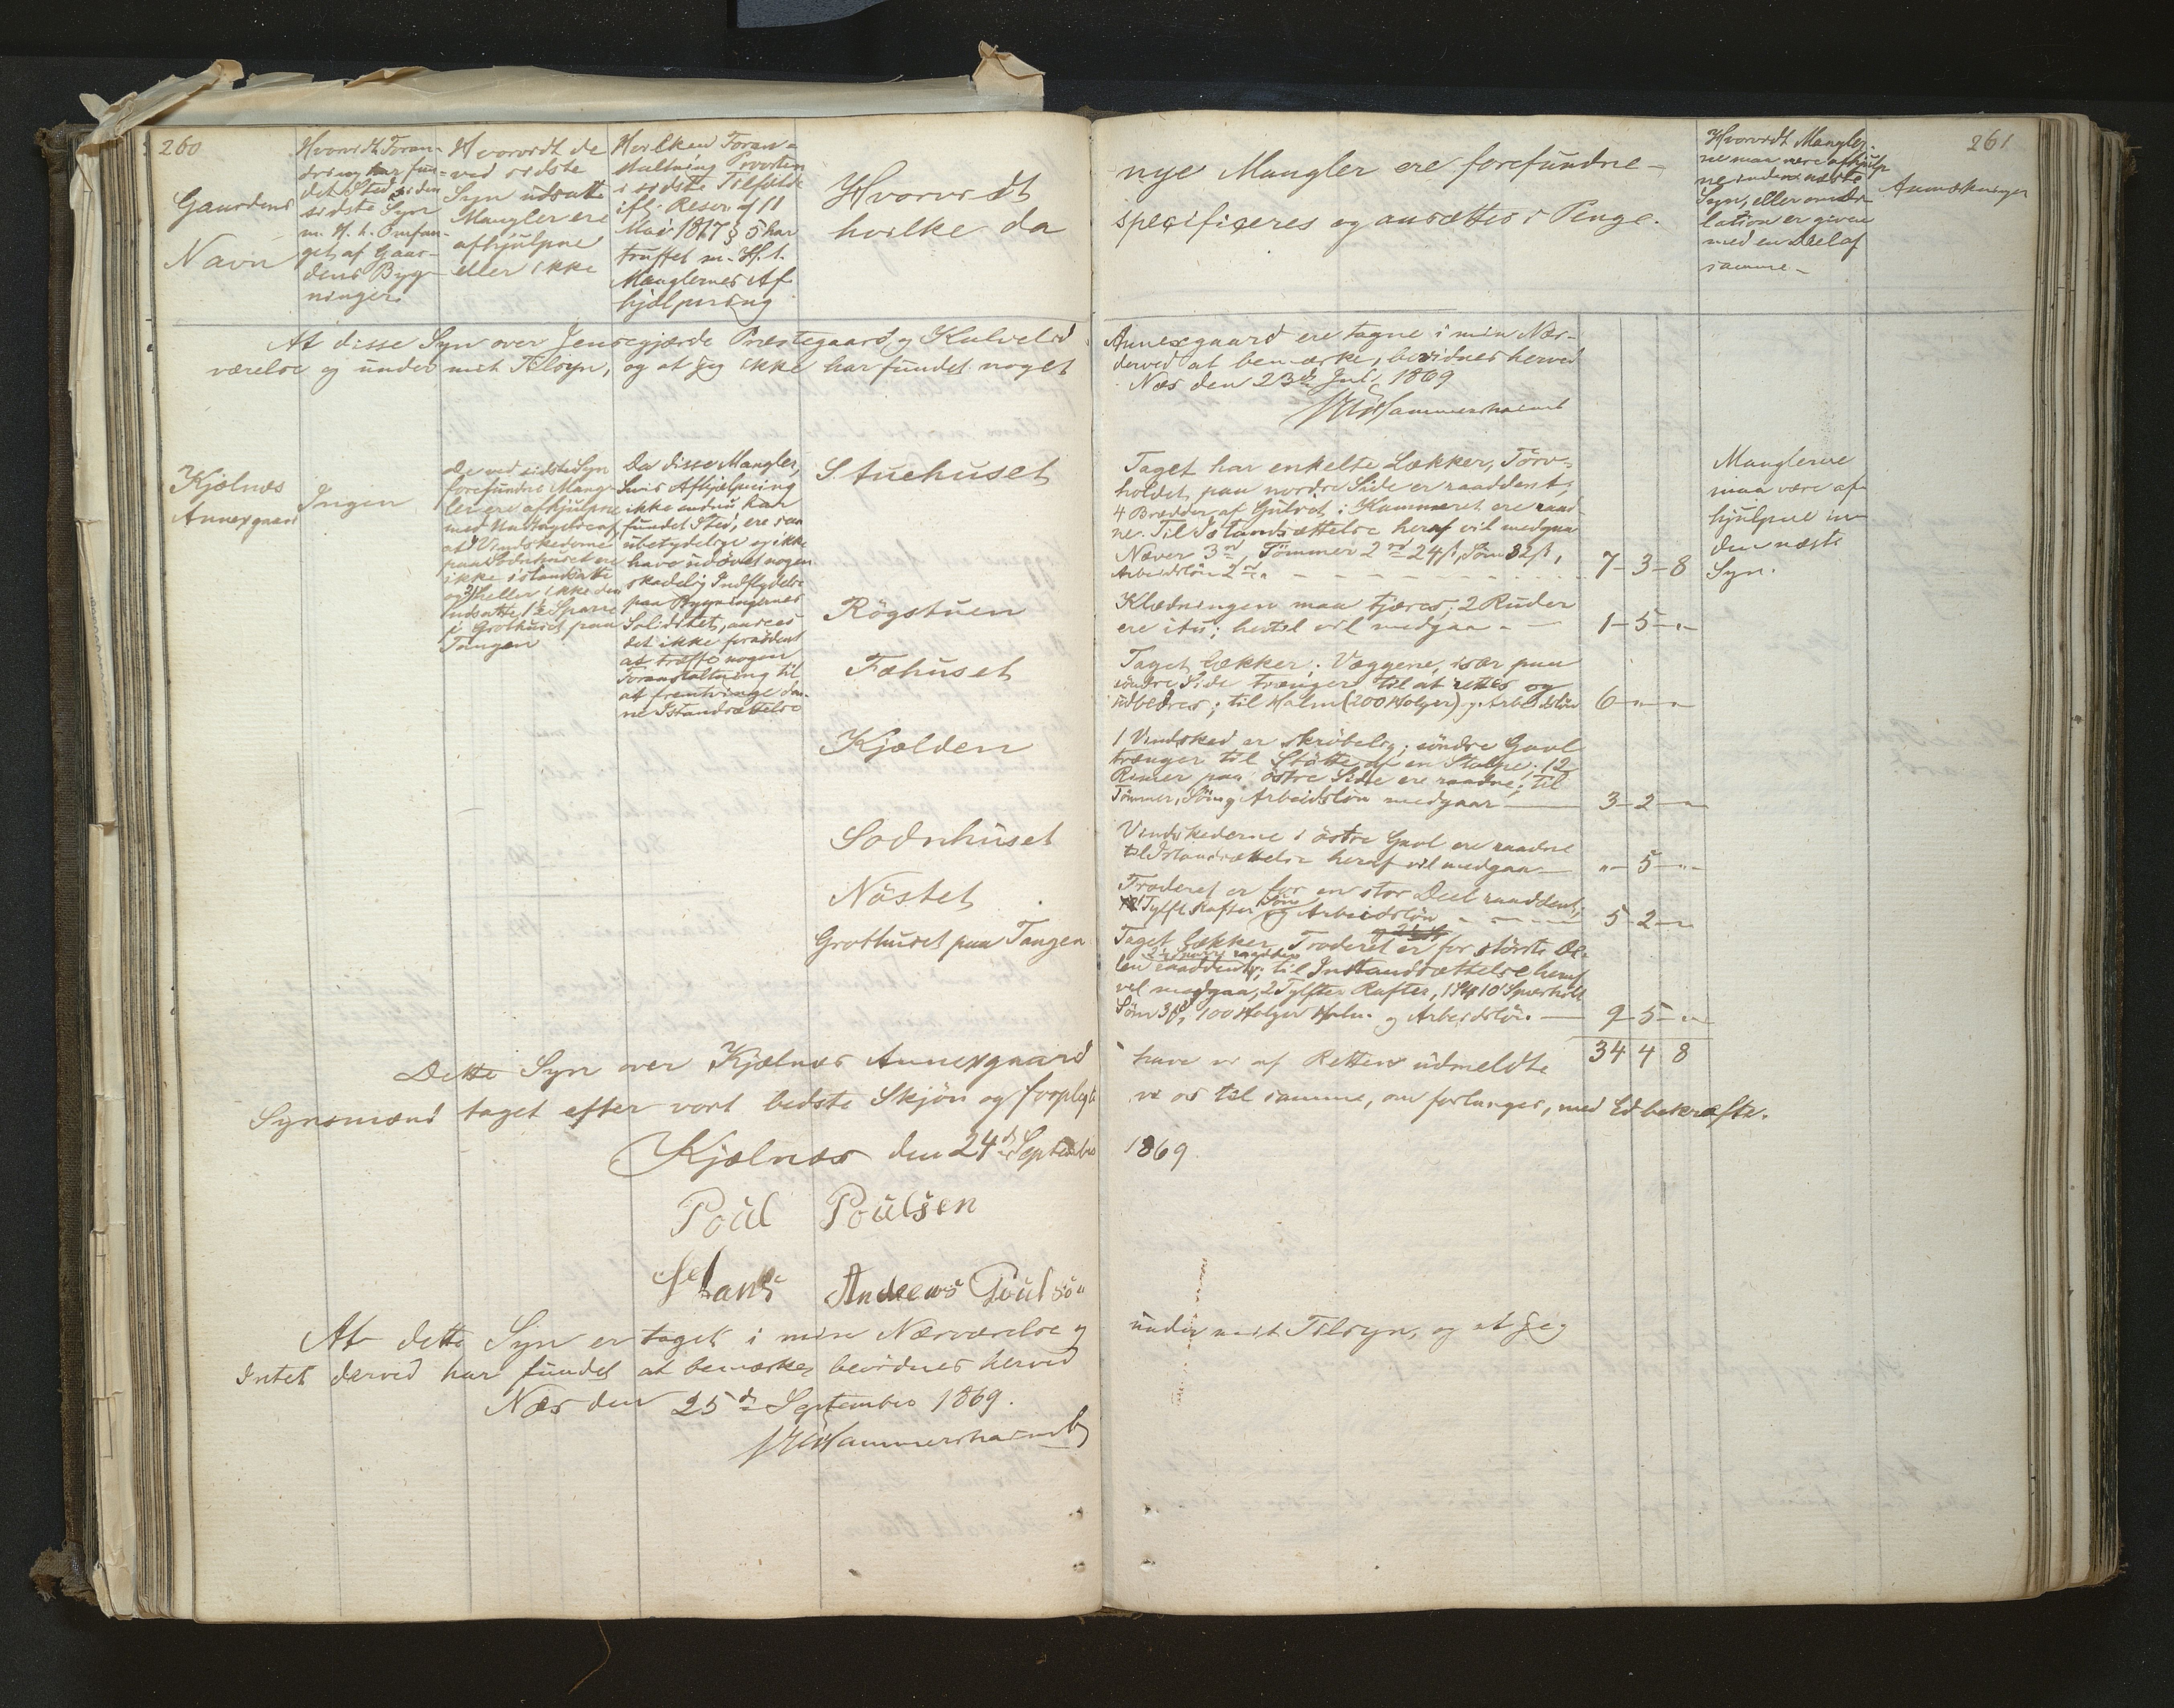 260
Gaardens
Navn
Hvorvidt Foran-
dring har fun-
det Sted siden
sidste Syn
m. H. t. Omfan-
get af Gaar-
dens Byg-
ninger.
Hvorvidt de
ved sidste
Syn udsatte
Mangler ere
afhjulpne
eller ikke
Hvilken Foran-
staltning Provsten
i sidste Tilfælde
ifl. Resor. af 11
Mai 1817 § 5 har
truffet m. H. t.
Manglernes Af-
hjælpning
Hvorvidt
hvilke da
nye Mangler ere forefundne -
specificeres og ansættes i Penge.
Hvorvidt Mangler-
ne maa være afhjulp
ne inden næste
Syn, eller om Di-
lation er given
med en Deel af
samme -
261
Anmærkninger
At disse Syn over Jensegjærde Præstegaard og Kulvelid
værelse og under mit Tilsyn, og at jeg ikke har fundet noget
Annexgaard ere tagne i min Nær-
derved at bemærke, bevidnes herved
Næs den 23de Juli 1869
VUHammershaimb
Kjælnæs
Annexgaard
Ingen
De ved sidste Syn
forefundne Mang-
ler ere afhjulpne
med Undtagelse af,
at 1) Vindskederne
paa Sodnhuset ere
ikke istandsatte
og 2) heller ikke den
udsatte 1/2 Sparre
i Grothuset paa
Tangen
Da disse Mangler,
hvis Afhjælpning
ikke endnu har
fundet Sted, ere saa
ubetydelige og ikke
have udøvet nogen
skadelig Indflydelse
paa Bygningernes
Soliditet, ansees
det ikke fornødent
at træffe nogen
Foranstaltning til
at fremtvinge den-
ne Istandsættelse
Stuehuset
Taget har enkelte Lækker, Törv-
holdet paa nordre Side er raaddent,
4 Brædder af Gulvet i Kammeret ere raad-
ne. Til Istandsættelse heraf vil medgaa
Næver 3 rd, Tömmer 2 rd 24 ß, Söm 32 ß,
Arbeidslön 2 rd.
7 - 3 - 8
Manglerne
maa være af-
hjulpne in-
den næste
Syn.
Rögstuen
Klædningen maa tjæres; 2 Ruder
ere itu; hertil vil medgaa -
1 - 5 - "
Fæhuset
Taget lækker. Væggene, især paa
söndre Side trænger til at rettes og
udbedres; til Halm (200 Halger) og Arbeidslön
6 - " - "
Kjælden
1 Vindsked er skröbelig; söndre Gavl
trænger til Stötte af en Stolpe; 12
Remer paa östre Side ere raadne; til
Tömmer, Söm og Arbeidslön medgaar
3 - 2 - "
Sodnhuset
Vindskederne i östre Gavl ere raadne
til Istandsættelse heraf vil medgaa
" - 5 - "
Nöstet
Troderet er for en stor Deel raaddent;
Tylft Rafter Söm og Arbeidslön
5 - 2 - "
Grothuset paa Tangen
Taget lækker, Troderet er for störste De-
len raaddent; til Instandsættelse heraf
vil medgaa, 2 Tylfter Rafter,
Söm 3 ß, 100 Halger Halm og Arbeidslön.
9 - 5 - "
34 4 8
Dette Syn over Kjælnæs Annexgaard
have vi af Retten udmeldte
Synsmænd taget efter vort bedste Skjön og forpligte
vi os til samme, om forlanges, med Ed bekræfte.
Kjælnæs den 24de September
1869
Poul Poulsen
Hans Andreas Poulsön
At dette Syn er taget i min Nærværelse og
under mit Tilsyn, og at jeg
Intet derved har fundet at bemærke, bevidnes herved
Næs den 25de September 1869.
VUHammershaimb